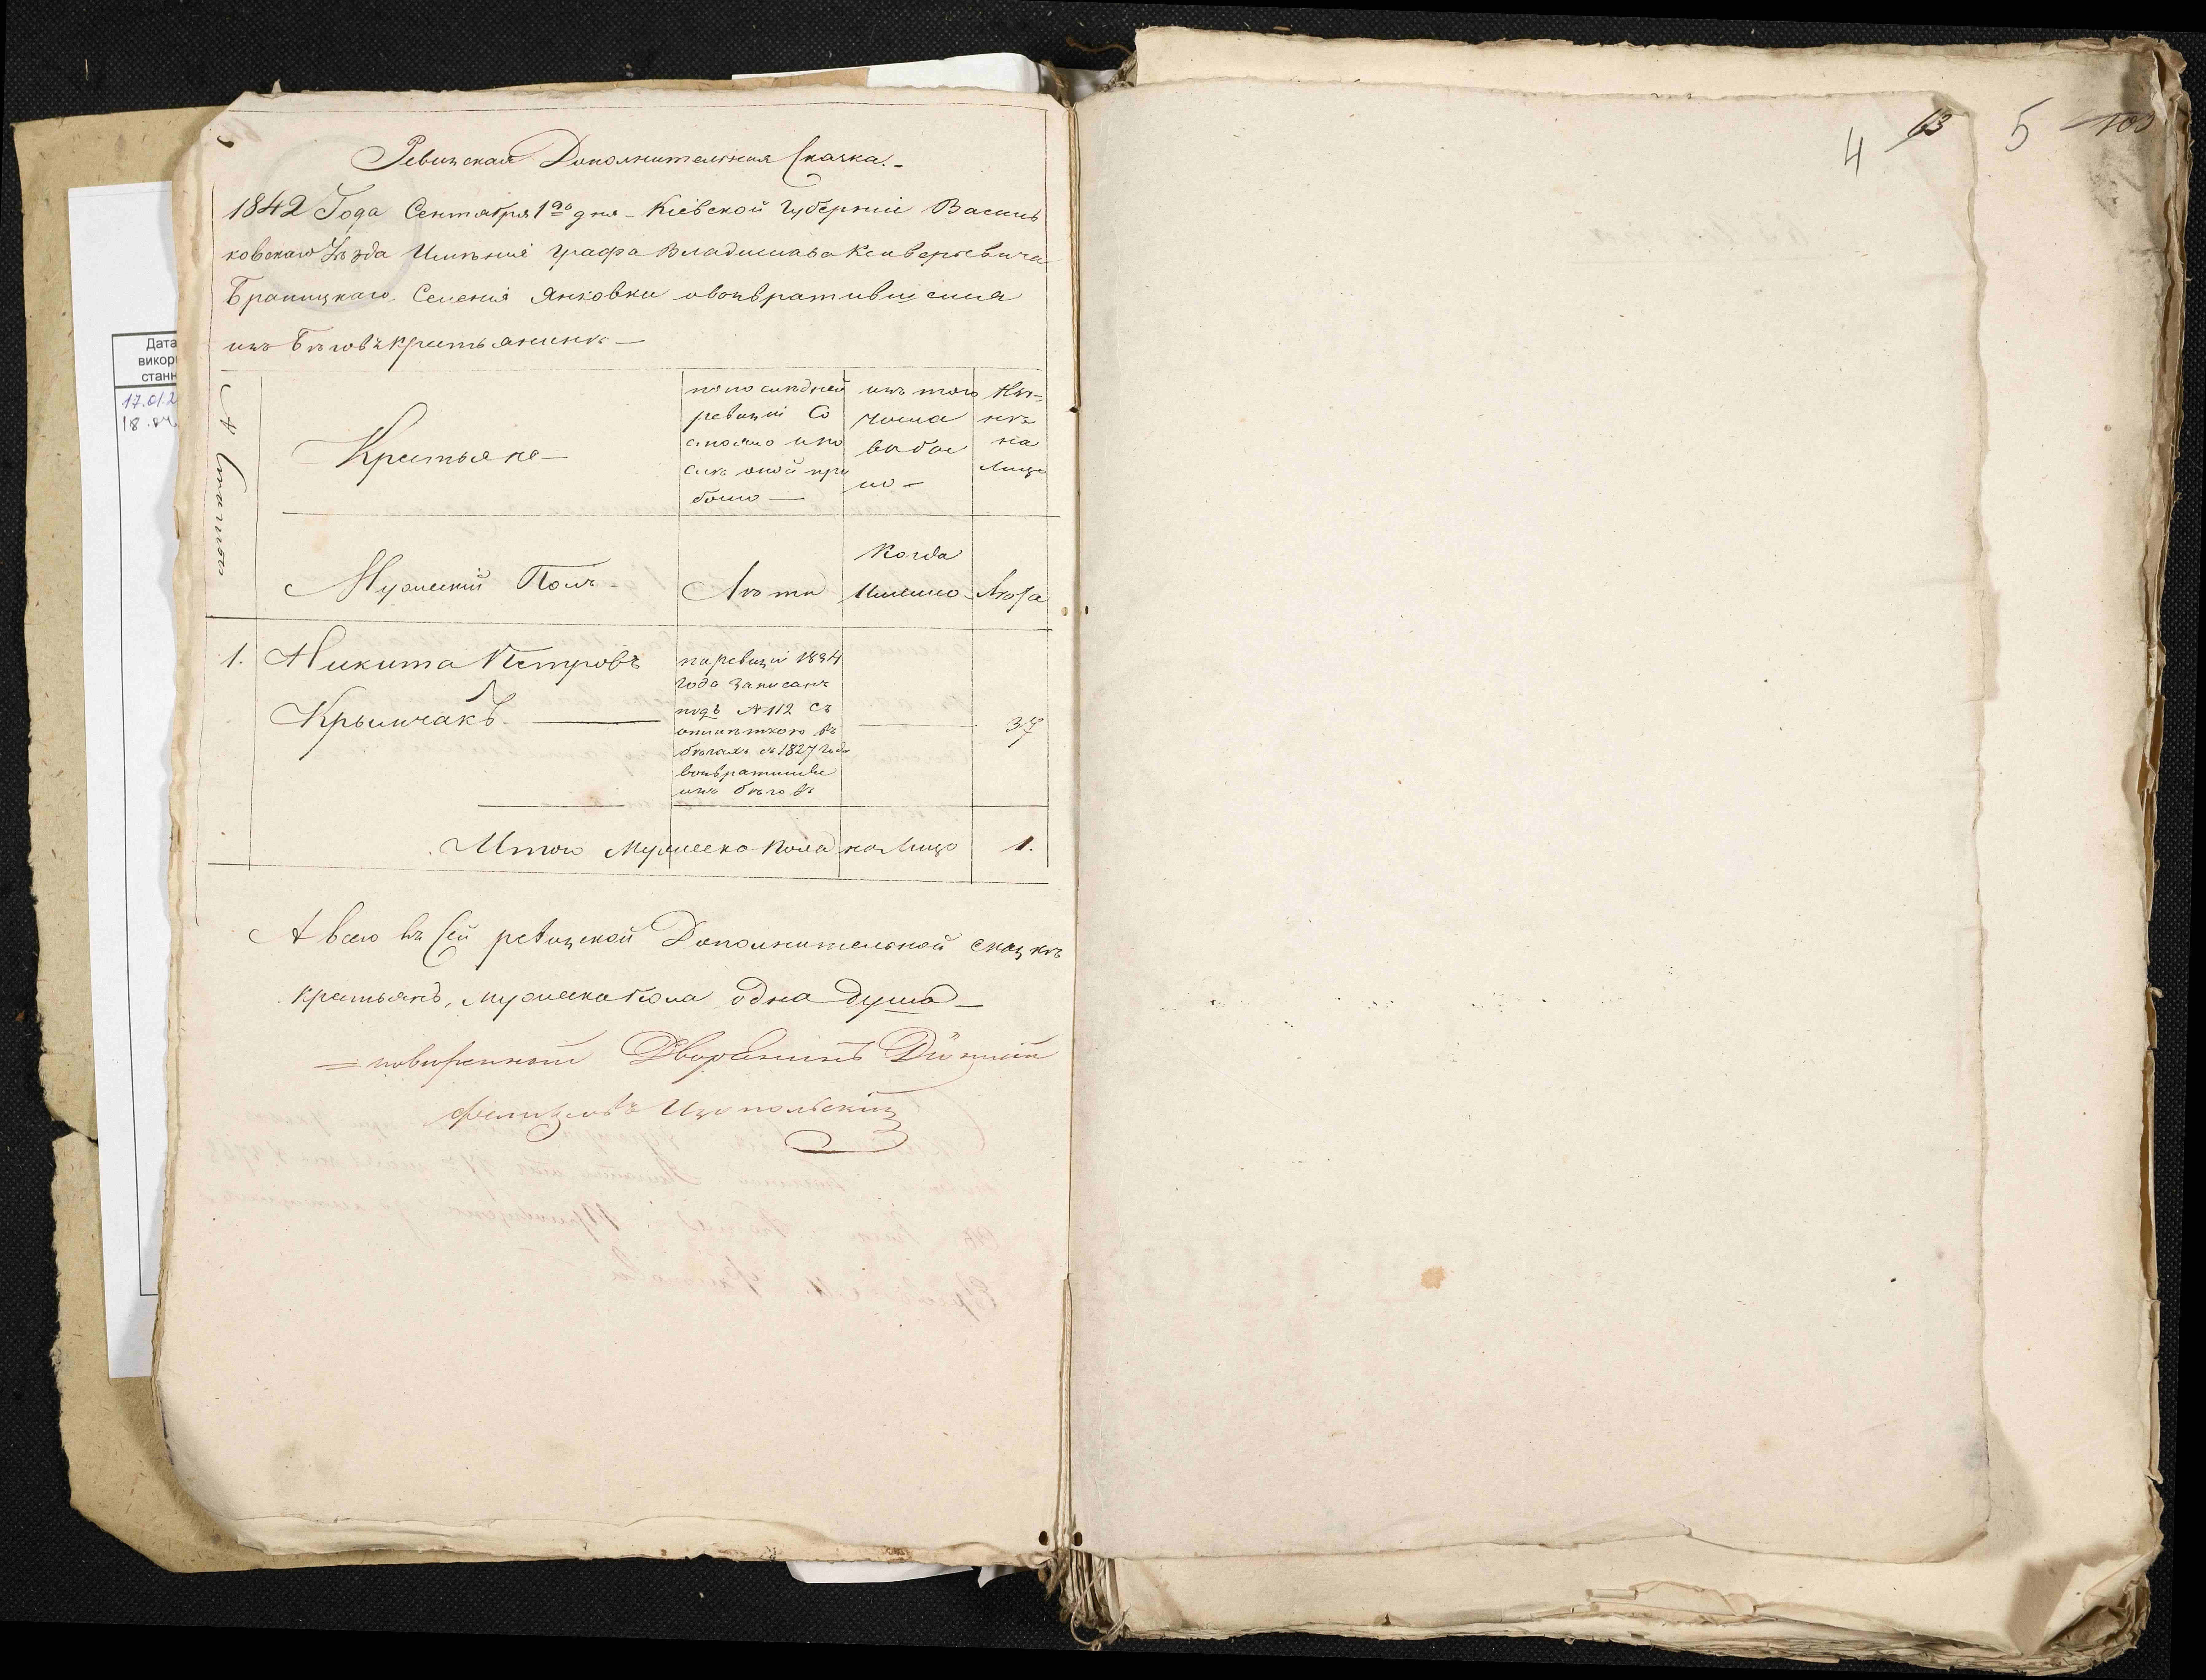 Ревизская Дополнительная Сказка.-
1842 Года Сентября 1го дня - Кіевской Губерніи Василь
ковскаго Уѣзда Имѣнія Графа Владислава Ксаверьевича
Браницкаго Селенія Янковки овозвратившемся
изъ Бѣговъ крестьянинѣ—
№ Семѣйство
Крестьяне—
попослѣдней
ревизіи Со
стояло ипо
слѣ оной при
было—
изъ того
числа
выбы
ло-
Ны-
нѣ
на
лицо
Мужеский Полъ-
Лѣта
Когда
Имянно-
Лѣта
1. Никита Петровъ
Крымчакъ.
поревизіи 1834
года записанъ
подъ №112 съ
отмѣткою въ
бѣгахъ съ 1827 года
возвратился
изъ бѣговъ
37
Итого Мужеска Пола налицо 1.
А всего въ Сей ревизской Дополнительной сказкѣ
крестьянъ, мужеска Пола одна душа—
= повѣренный Дворянинъ
4 63 5 103
Дата
викор
станн
17.01.2
18.04.